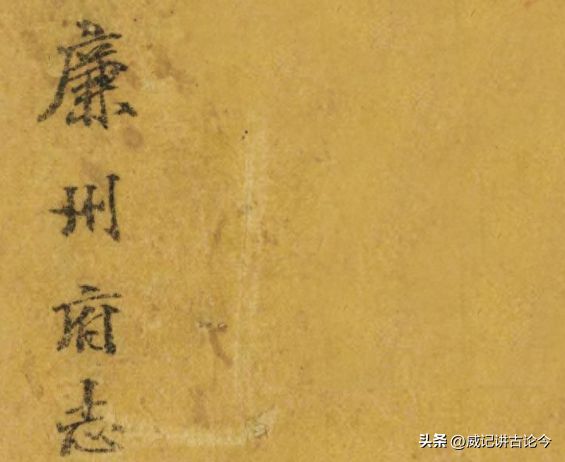 廉州府志
头条 @威记讲古论今